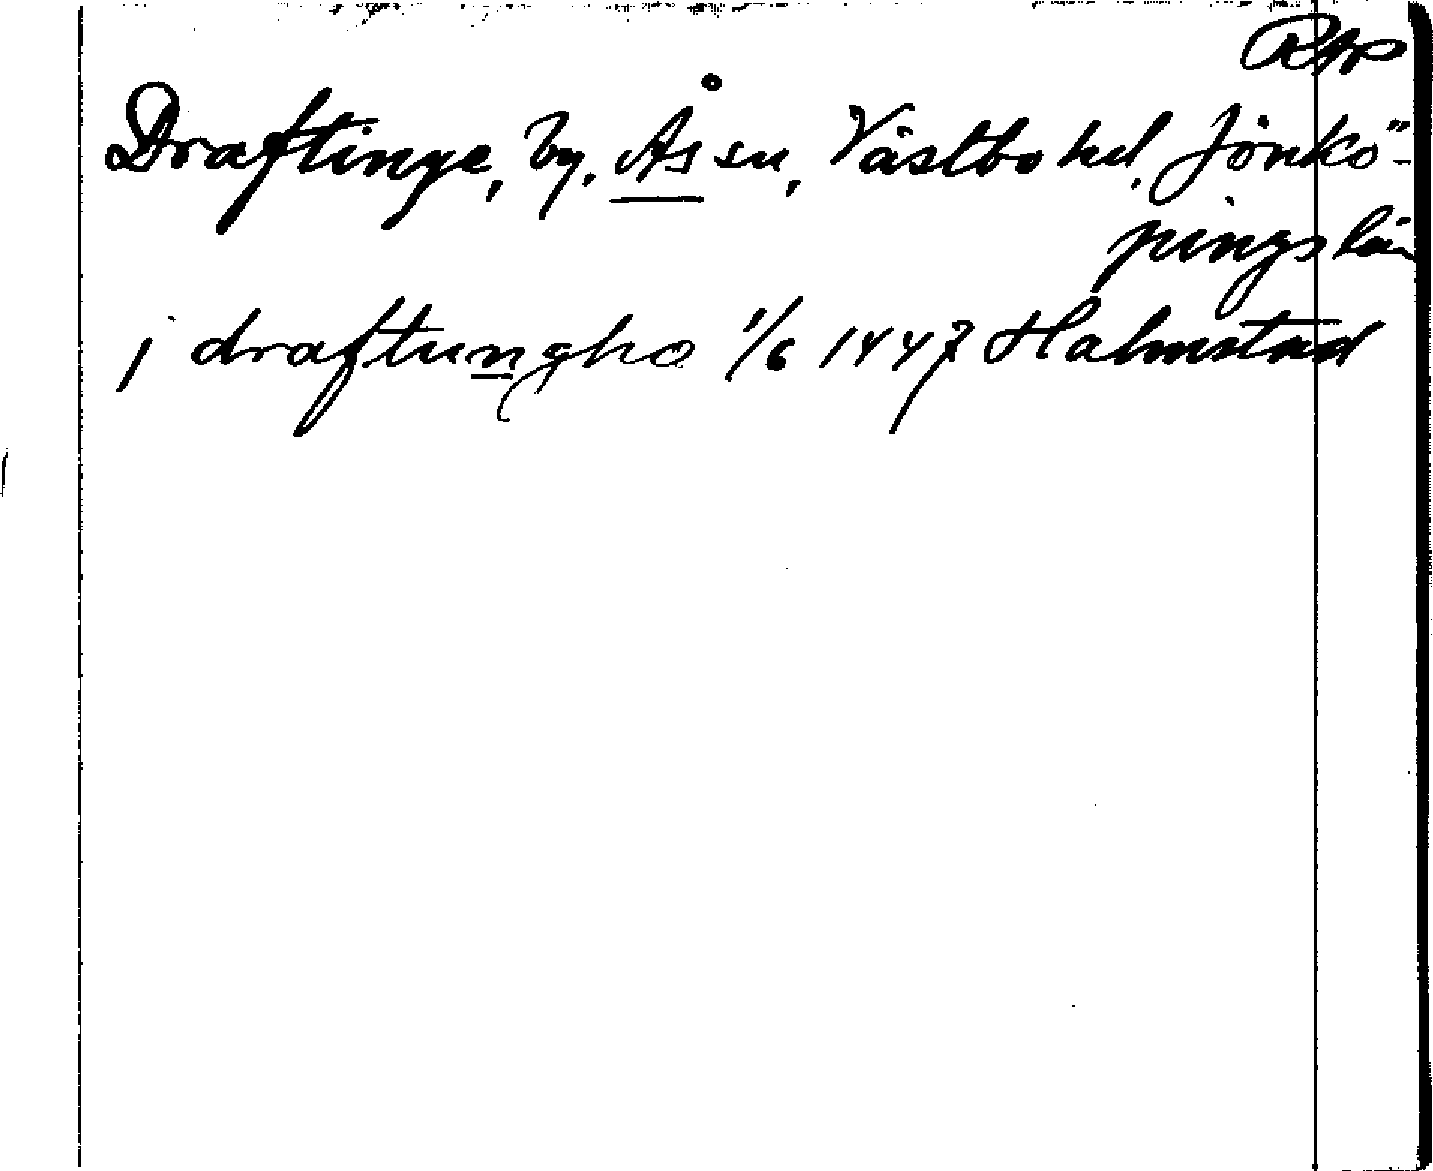 RAp
Draftinge, by, Ås sn, Västbo hd, Jönkö-
pings län
j draftungho 1/6 1447 Halmstad